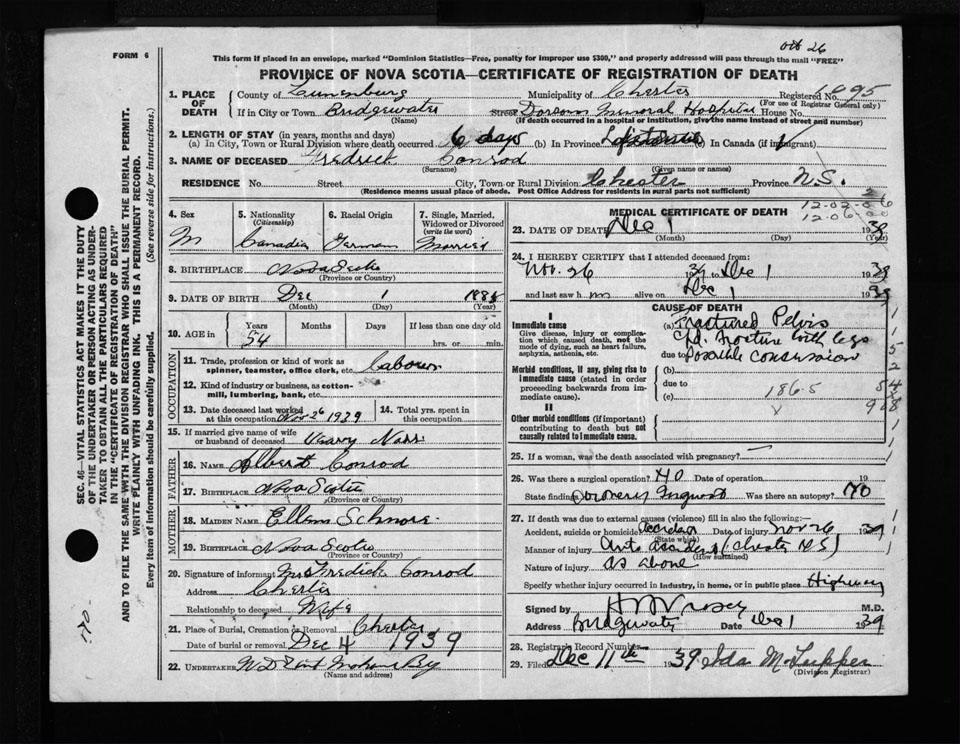 Oct 26
FORM 6
This form if placed in an envelope, marked "Dominion Statistics—Free, penalty for improper use $300," and properly addressed will pass through the mail "FREE"
PROVINCE OF NOVA SCOTIA—CERTIFICATE OF REGISTRATION OF DEATH
SEC. 46—VITAL STATISTICS ACT MAKES IT THE DUTY
OF THE UNDERTAKER OR PERSON ACTING AS UNDER-
TAKER TO OBTAIN ALL THE PARTICULARS REQUIRED
IN THE "CERTIFICATE OF REGISTRATION OF DEATH"
AND TO FILE THE SAME WITH THE DIVISION REGISTRAR WHO SHALL ISSUE THE BURIAL PERMIT.
WRITE PLAINLY WITH UNFADING INK. THIS IS A PERMANENT RECORD.
Every item of information should be carefully supplied. (See reverse side for instructions.)
170
1. PLACE OF DEATH
County of Lunenburg Municipality of Chester Registered No.
(For use of Registrar General only)
If in City or Town Bridgewater Street Hospital House No.
(Name) (If death occurred in a hospital or institution, give the name instead of street and number)
2. LENGTH OF STAY (in years, months and days)
(a) In City, Town or Rural Division where death occurred 6 days (b) In Province Lifetime (c) In Canada (if immigrant)
3. NAME OF DECEASED Fredrick Conrod
(Surname) (Given name or names)
RESIDENCE No. Street City, Town or Rural Division Chester Province N.S.
(Residence means usual place of abode. Post Office Address for residents in rural parts not sufficient)
4. Sex M
5. Nationality (Citizenship) Canadia
6. Racial Origin German
7. Single, Married, Widowed or Divorced (write the word) Married
8. BIRTHPLACE Nova Scotia
(Province or Country)
9. DATE OF BIRTH Dec 1
(Month) (Day) (Year)
10. AGE in Years Months Days If less than one day old
54 hrs. or min.
OCCUPATION
11. Trade, profession or kind of work as
spinner, teamster, office clerk, etc. Labourer
12. Kind of industry or business, as cotton-
mill, lumbering, bank, etc.
13. Date deceased last worked
at this occupation Nov 26 1939
14. Total yrs. spent in
this occupation
15. If married give name of wife
or husband of deceased
FATHER
16. NAME Albert Conrod
17. BIRTHPLACE Nova Scotia
(Province or Country)
MOTHER
18. MAIDEN NAME Ellen
19. BIRTHPLACE Nova Scotia
(Province or Country)
20. Signature of informant Mrs Fredick Conrod
Address Chester
Relationship to deceased Wife
21. Place of Burial, Cremation or Removal Chester
Date of burial or removal Dec 4 1939
22. UNDERTAKER
(Name and address)
12-02-06
12-06-00
MEDICAL CERTIFICATE OF DEATH
23. DATE OF DEATH Dec 1 1939
(Month) (Day) (Year)
24. I HEREBY CERTIFY that I attended deceased from:
Nov. 26 1939 to Dec 1 1939
and last saw h m alive on Dec 1 1939
CAUSE OF DEATH
I
Immediate cause
Give disease, injury or complication which caused death, not the mode of dying, such as heart failure, asphyxia, asthenia, etc.
(a) Fractured Pelvis
Cpd. fracture both legs
due to possible concussion
Morbid conditions, if any, giving rise to immediate cause (stated in order proceeding backwards from immediate cause)
(b)
due to
(c) 186.5
II
Other morbid conditions (if important) contributing to death but not causally related to immediate cause.
25. If a woman, was the death associated with pregnancy?
26. Was there a surgical operation? NO Date of operation 19
State findings Coroners Inquest Was there an autopsy? NO
27. If death was due to external causes (violence) fill in also the following:—
Accident, suicide or homicide? Accident Date of injury Nov 26 1939
(State which)
Manner of injury Auto accident (Chester N.S)
(How sustained)
Nature of injury as above
Specify whether injury occurred in industry, in home, or in public place Highway
Signed by M.D.
Address Bridgewater Date Dec 1 1939
28. Registrar's Record Number
29. Filed Dec 11th 1939 Ida M Tupper
(Division Registrar)